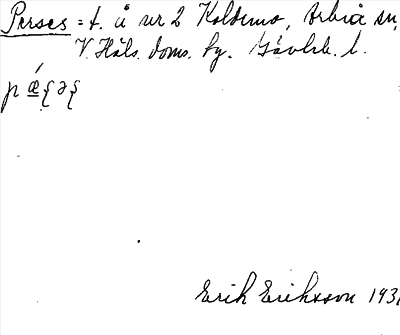 Perses = t. å nr 2 Koldemo, Arbrå sn,
V. Häls. doms. hg. Gävleb. l.
Erik Eriksson 193